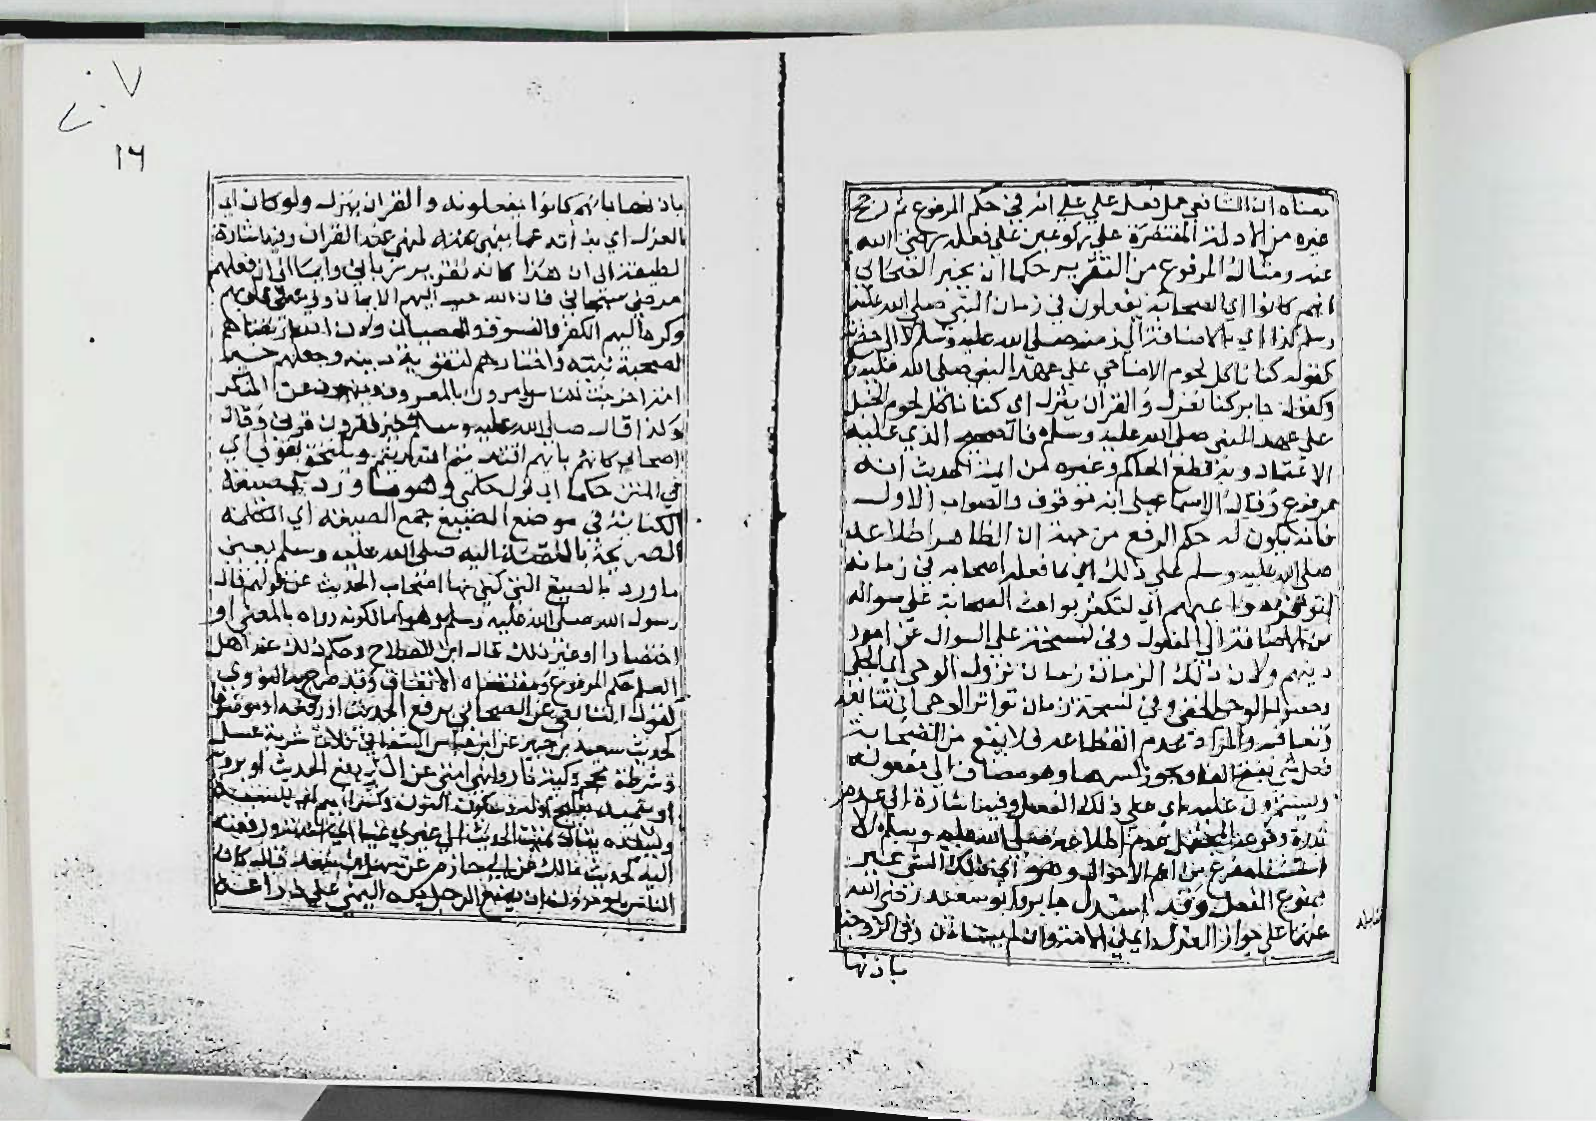 معناه ان الشافعي حمل فعل علي على انه في حكم المرفوع ثم رجح
غيره من الادلة المقتضية على ركوعين على فعله رضي الله
عنه ومثال المرفوع من التقرير حكما ان يخبر الصحابي
انهم كانوا اي الصحابة يفعلون في زمان النبي صلى الله عليه
وسلم كذا اي بالاضافة الى زمنه صلى الله عليه وسلم لا الى حضرته
كقوله كنا ناكل لحوم الاضاحي على عهد النبي صلى الله عليه
وكقول جابر كنا نعزل والقران ينزل اي كنا ناكل لحوم الخيل
على عهد النبي صلى الله عليه وسلم فالصحيح الذي عليه
الاعتماد وبه قطع الحاكم وغيره من ايمة الحديث انه
مرفوع وقال الاسماعيلي انه موقوف والصواب الاول
فانه يكون له حكم الرفع من جهة ان الظاهر اطلاعه
صلى الله عليه وسلم على ذلك اي ما فعله اصحابه في زمانه
لتوفر دواعيهم اي لتكثر بواعث الصحابة على سواله
من الاضافة الى المفعول وفي نسخة على السوال عن امور
دينهم ولان ذلك الزمان زمان نزول الوحي اي الجلي
الوحي الخفي وفي نسخة زمان تواتر الوحي اي تتابعه
وتعاقبه والمراد عدم انقطاعه فلا يقع من الصحابة
فعل شي بفتح الفا ويجوز كسرها وهو مضاف الى مفعوله
ويستمرون عليه اي على ذلك الفعل وفيه اشارة الى عدم
ندرة وقوعه المحتمل عدم اطلاعه صلى الله عليه وسلم الا
استثناء مفرغ من اعم الاحوال وهو اي ذلك الشي غير
ممنوع الفعل وقد استدل جابر وابو سعيد رضي الله
عنهما على جواز العزل اي على الامة وان لم يستاذن وفي الزوجة
باذنها
٧
١٦
باذنها بانهم كانوا يفعلونه والقران ينزل ولو كان اي
العزل اي بذاته مما ينهى عنه لنهى عنه القران وفيه اشارة
لطيفة الى ان هذا كانه تقرير رباني وايما الى ان فعلهم
مرضي سبحاني فان الله حبب اليهم الايمان وزينه في قلوبهم
وكره اليهم الكفر والفسوق والعصيان ولان الله ارتضاهم
لصحبة نبيه واختارهم لتقوية دينه وجعلهم خير
امة اخرجت للناس يامرون بالمعروف وينهون عن المنكر
ولذا قال صلى الله عليه وسلم خير القرون قرني وقال
اصحابي كالنجوم بايهم اقتديتم اهتديتم ويلتحق بقولي اي
في المتن حكما اي قول حكمي وهو ما ورد بصيغة
الكناية في موضع الصيغ جمع الصيغة اي الكلمة
الصريحة بالنسبة اليه صلى الله عليه وسلم يعني
ما ورد بالصيغ التي كني بها اصحاب الحديث عن قولهم قال
رسول الله صلى الله عليه وسلم وهو اما لكونه رواه بالمعنى او
اختصارا او غير ذلك قاله ابن الصلاح وحكم ذلك عند اهل
العلم حكم المرفوع ومقتضاه الاتفاق وقد صرح به النووي
كقول التابعي عن الصحابي يرفع الحديث او رفعه او مرفوعا
كحديث سعيد بن جبير عن ابن عباس الشفا في ثلاث شربة عسل
وشرطة محجم وكية نار وانهى امتي عن الكي يرفع الحديث او يرويه
او ينميه بفتح اوله وسكون النون وكسر الميم اي ينسبه
ويسنده يقال نميت الحديث الى غيري نميا اي اسندته ورفعته
اليه كحديث مالك عن ابي حازم عن سهل بن سعد قال كان
الناس يؤمرون ان يضع الرجل يده اليمنى على ذراعه